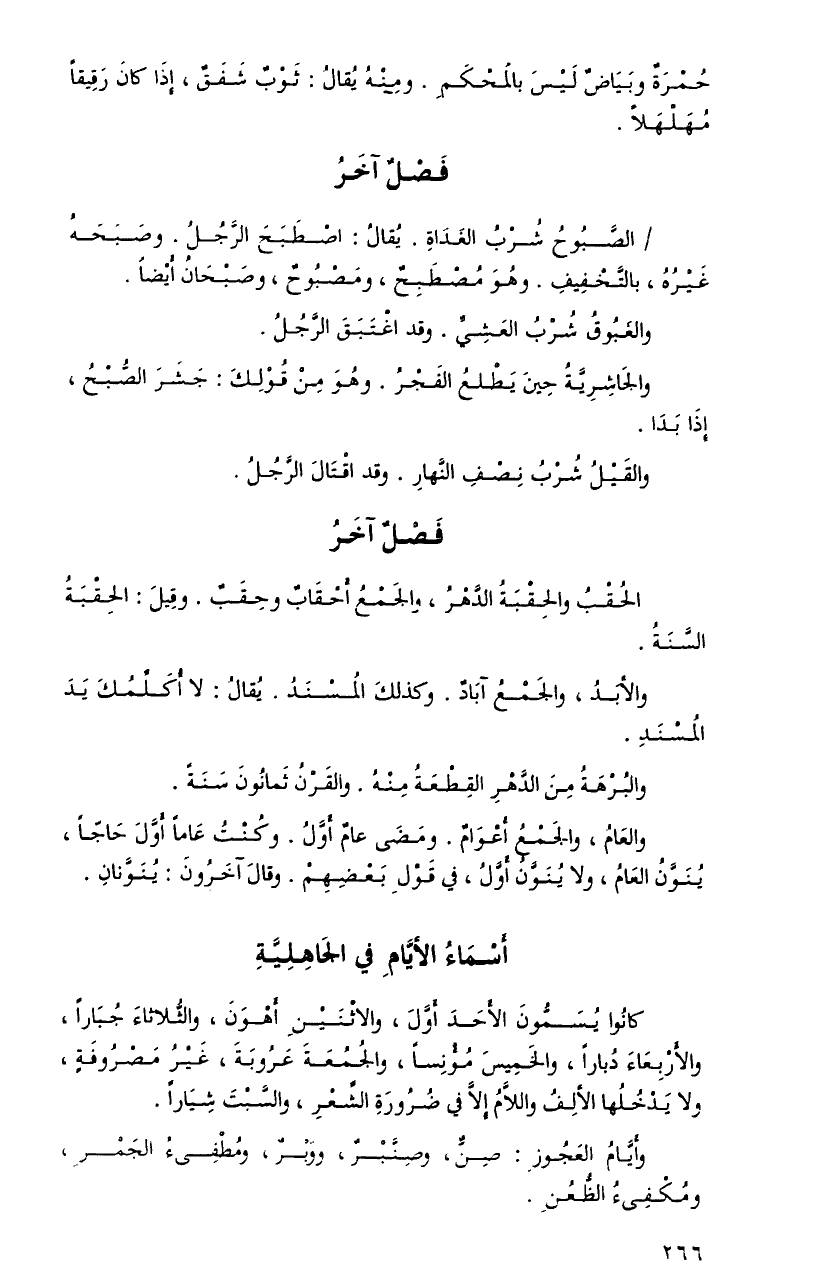 حُمْرَةٌ وبَيَاضٌ لَيْسَ بالمُحْكَمِ . ومِنْهُ يُقالُ : ثَوْبٌ شَفَقٌ ، إِذَا كانَ رَقِيقاً
مُهَلْهَلاً .
فَصْلٌ آخَرُ
/ الصَّبُوحُ شُرْبُ الغَدَاةِ . يُقالُ : اصْطَبَحَ الرَّجُلُ . وصَبَحَهُ
غَيْرُهُ ، بالتَّخْفِيفِ . وهُوَ مُصْطَبِحٌ ، ومَصْبُوحٌ ، وصَبْحَانُ أَيْضاً .
والغَبُوقُ شُرْبُ العَشِيِّ . وقد اغْتَبَقَ الرَّجُلُ .
والجَاشِرِيَّةُ حِينَ يَطْلعُ الفَجْرُ . وهُوَ مِنْ قُوْلِكَ : جَشَرَ الصُّبْحُ ،
إِذَا بَدَا .
والقَيْلُ شُرْبُ نِصْفِ النَّهارِ . وقد اقْتَالَ الرَّجُلُ .
فَصْلٌ آخَرُ
الحُقْبُ والحِقْبَةُ الدَّهْرُ ، والجَمْعُ أَحْقَابٌ وحِقَبٌ . وقِيلَ : الحِقْبَةُ
السَّنَةُ .
والأبَدُ ، والجَمْعُ آبَادٌ . وكذلكَ المُسْنَدُ . يُقالُ : لا أُكَلِّمُكَ يَدَ
المُسْنَدِ .
والبُرْهَةُ مِنَ الدَّهْرِ القِطْعَةُ مِنْهُ . والقَرْنُ ثَمانُونَ سَنَةً .
والعَامُ ، والجَمْعُ أَعْوَامٌ . ومَضَى عامٌ أَوَّلُ . وكُنْتُ عَاماً أَوَّلَ حَاجّاً ،
يُنَوَّنُ العَامُ ، ولا يُنَوَّنُ أَوَّلُ ، في قَوْلِ بَعْضِهِمْ . وقالَ آخَرُونَ : يُنَوَّنانِ .
أَسْمَاءُ الأيَّامِ في الجَاهِلِيَّةِ
كانُوا يُسَمُّونَ الأحَدَ أَوَّلَ ، والاثْنَيْنِ أَهْوَنَ ، والثُّلاثاءَ جُبَاراً ،
والأرْبِعَاءَ دُباراً ، والخَمِيسَ مُؤْنِساً ، والجُمُعَةَ عَرُوبَةَ ، غَيْرُ مَصْرُوفَةٍ ،
ولا يَدْخُلُها الألِفُ واللاَّمُ إلاَّ في ضُرُورَةِ الشِّعْرِ ، والسَّبْتَ شِيَاراً .
وأَيَّامُ العَجُوزِ : صِنٌّ ، وصِنَّبْرٌ ، ووَبْرٌ ، ومُطْفِىءُ الجَمْرِ ،
ومُكْفِىءُ الظُّعُنِ .
٢٦٦